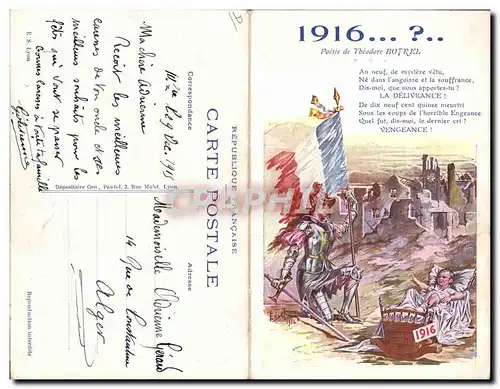 1916... ?..
Poésie de Théodore BOTREL
An neuf, de mystère vêtu,
Né dans l'angoisse et la souffrance,
Dis-moi, que nous apportes-tu ?
LA DÉLIVRANCE !
De dix neuf cent quinze meurtri
Sous les coups de l'horrible Engeance
Quel fut, dis-moi, le dernier cri ?
VENGEANCE !
1916
RÉPUBLIQUE FRANÇAISE
CARTE POSTALE
Correspondance
Adresse
Ma chère Adrienne
Reçois les meilleures
caresses de ton oncle et ses
meilleurs souhaits pour les
fêtes qui vont se passer
Bonnes caresses à toute la famille
Mademoiselle Adrienne Gérard
14 Rue de Constantine
Alger
E. S. Lyon
Dépositaire Gen., Pastel, 2, Rue Mulet, Lyon
Reproduction interdite